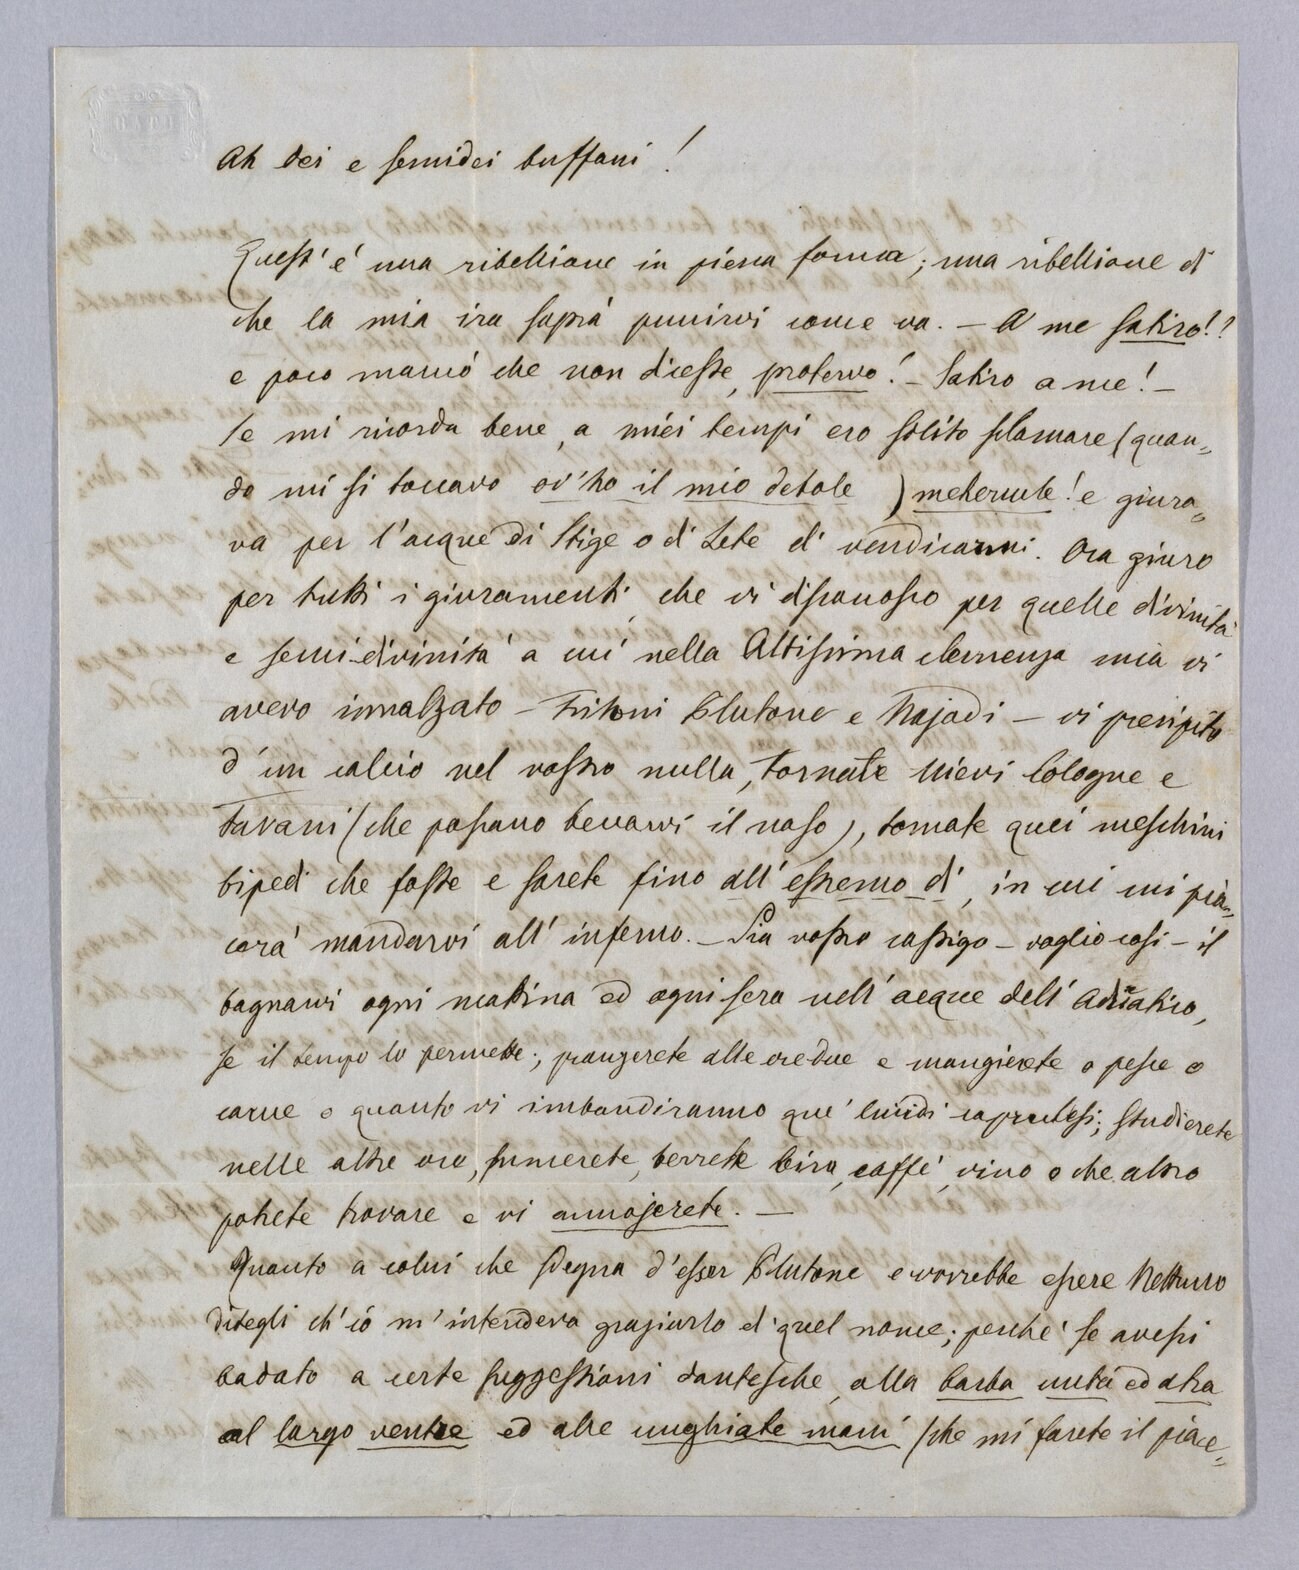 Ah dei e semidei buffoni!
Quest'è una ribellione in piena forma; una ribellione di
che la mia ira saprà punirvi come va. — A me satiro!?
e poco mancò che non diceste, protervo! — Satiro a me! —
Se mi ricorda bene, a miei tempi ero solito sclamare (quan=
do mi si toccava ov'ho il mio debole) mehercule! e giura=
va per l'acque di Stige o di Lete di vendicarmi. Ora giuro
per tutti i giuramenti, che vi disconosco per quelle divinità
e semi-divinità a cui nella Altissima clemenza mia vi
avevo innalzato — Tritoni Plutone e Najadi — vi precipito
d'un calcio nel vostro nulla, tornate Nievi Cologne e
Tavani (che possano beccarvi il naso), tornate quei meschini
bipedi che foste e sarete fino all'estremo dì, in cui mi pia=
cerà mandarvi all'inferno. — Sia vostro castigo — voglio così — il
bagnarvi ogni mattina ed ogni sera nell'acque dell'Adriatico,
se il tempo lo permette; pranzerete alle ore due e mangierete o pesce o
carne o quanto vi imbandiranno que' luridi caprulesi; studierete
nelle altre ore, fumerete, berrete bira, caffè, vino o che altro
potrete trovare e vi annojerete. —
Quanto a colui che sdegna d'esser Plutone e vorrebbe essere Nettuno
ditegli ch'io m'intendeva graziarlo di quel nome; perchè se avessi
badato a certe suggestioni dantesche, alla barba unta ed atra
al largo ventre ed alle unghiate mani (che mi farete il piace=